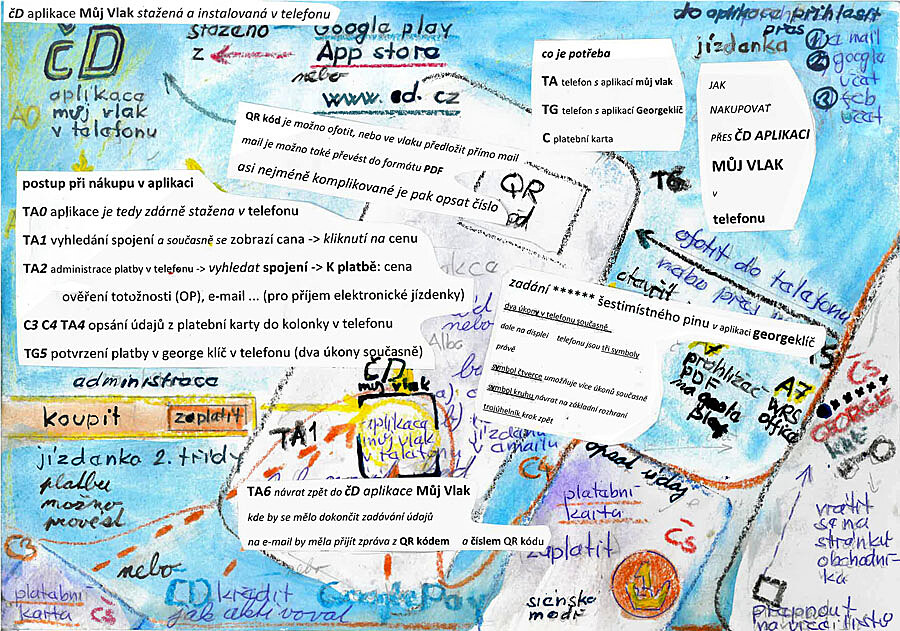 čD aplikace Můj Vlak stažená a instalovaná v telefonu
ČD
aplikace
můj vlak
v talafonu
AO
stazeno
z
Google play
App stora
nebo
www. cd. cz
do aplikace prihlasit
přes
jízdanka
① a mail
② google
účat
③ fcb
účat
co je potřeba
TA telefon s aplikací můj vlak
TG telefon s aplikací Georgeklíč
C platební karta
JAK
NAKUPOVAT
PŘES ČD APLIKACI
MŮJ VLAK
v
telefonu
QR kód je možno ofotit, nebo ve vlaku předložit přímo mail
mail je možno také převést do formátu PDF
asi nejméně komplikované je pak opsat číslo
QR
TG
postup při nákupu v aplikaci
TA0 aplikace je tedy zdárně stažena v telefonu
TA1 vyhledání spojení a současně se zobrazí cana -> kliknutí na cenu
TA2 administrace platby v telefonu -> vyhledat spojení -> K platbě: cena
ověření totožnosti (OP), e-mail ... (pro příjem elektronické jízdenky)
C3 C4 TA4 opsání údajů z platební karty do kolonky v telefonu
TG5 potvrzení platby v george klíč v telefonu (dva úkony současně)
ofotit do talafonu
nebo
otavřít
nebo
zadání ****** šestimístného pinu v aplikaci georgeklíč
dva úkony v telefonu současně
dale na displej telefonu jsou tři symboly
právě
symbol čtverce umožňuje více úkonů současně
symbol kruhu návrat na základní rozhraní
trojúhelník krok zpět
prohlížač
PDF
A7
WRS
office
ČS
GEORGE
administrace
koupit
zaplatit
ČD
můj vlak
aplikaca
můj vlak
v talafonu
TA1
jízdanka 2. třídy
platbu
možno
provést
jízdanu
v amailu
C4
opsat údaj
TA6 návrat zpět do čD aplikace Můj Vlak
kde by se mělo dokončit zadávání údajů
na e-mail by měla přijít zpráva z QR kódem a číslem QR kódu
platabní
karta
ČS
zaplatit
siénsko
modř
vrátit
se na
stránku
obchodní-
ka
přepnout
C3
platabní
karta
ČS
nebo
ČD kradit
jak aktivoval
Google Pay